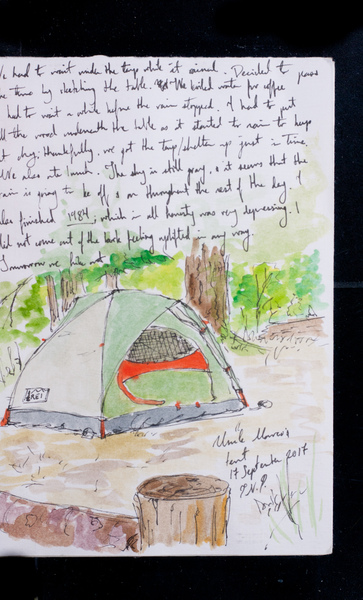 We had to wait under the tarp while it rained. Decided to pass
the time by sketching the table. We boiled water for coffee
had to wait a while before the rain stopped. I had to put
all the wood underneath the table as it started to rain to keep
it dry, thankfully, we got the tarp/shelter up just in time.
We also ate lunch. The sky is still gray, & it seems that the
rain is going to be off & on throughout the rest of the day. I
also finished 1984, which in all honesty was very depressing. I
did not come out of the book feeling uplifted in any way.
Tomorrow we hike out
REI
Uncle Marco's
tent
17 September 2017